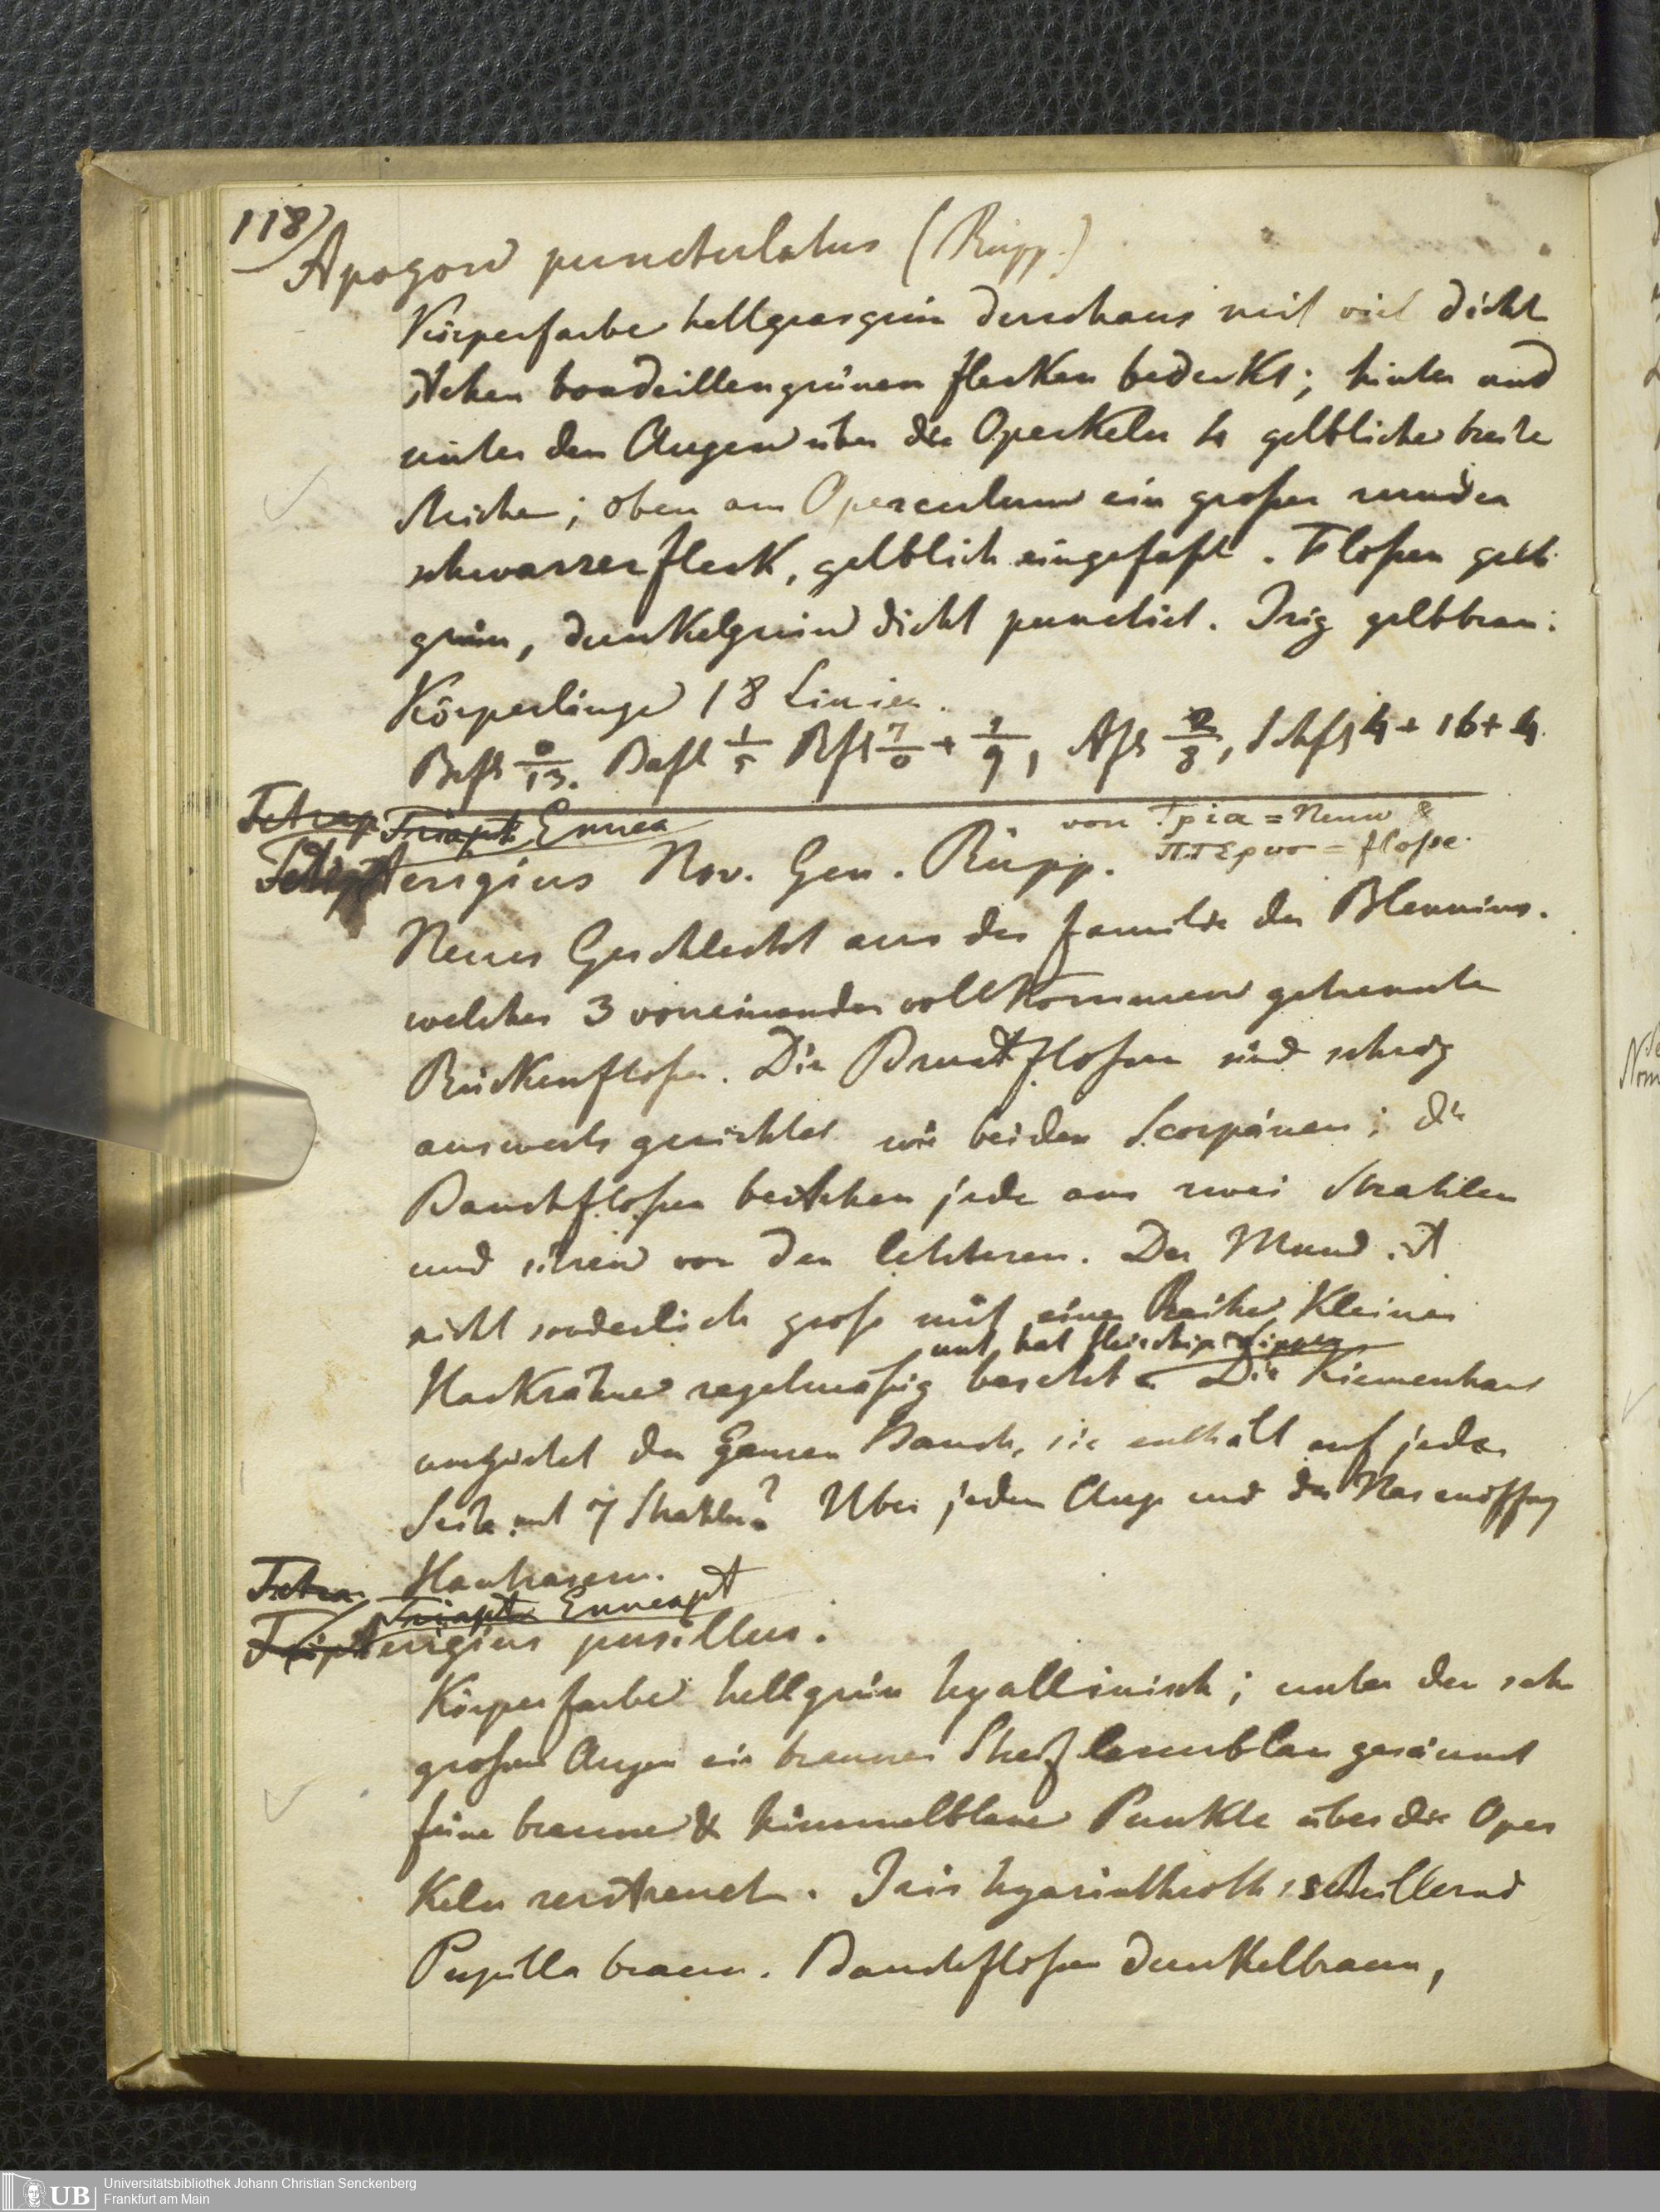 118)
Apogon punctulatus (Rüpp.)
Körperfarbe hellgrasgrün durchaus mit viel dicht
stehen boudeillengrünen flecken bedeckt; hinter und
unter den Augen über die Operkeln 4 gelbliche breite
striche; oben am Operculum ein großer runder
schwarzer fleck, gelblich eingefaßt. Floßen gelb
grün, dunkelgrün dicht punctirt. Iris gelbbraun.
Körperlänge 18 Linien.
Brfl 0/13. Bafl 1/5 Rfl 7/0 + 1/9, Afl 2/8, Schfl 4 + 16 + 4
Tetrap Triapt Ennea
von Τρια = Neun &
πτερυσ = floße.
pterigius Nov. Gen. Rüpp.
Neues Geschlecht aus der familie der Blennius.
welches 3 voneinander vollkommen getrennte
Rückenfloßen. Die Brustfloßen sind schräg
auswerts gerichtet wie bei den Scorpänen; die
Bauchfloßen bestehen jede aus zwei Strahlen
und sitzen vor den letzteren. Der Mund ist
nicht sonderlich groß mit einer Reihe kleiner
und hat fleischige Lippen
Hackzähne regelmäßig besetzt. Die Kiemenhaut
umgürtet den ganzen Bauch, sie enthält auf jeder
Seite mit 7 Strahlen? Uber jedem Auge und der Nasenöffng
Hautfasern.
Tetra
Triapt Enneapt
Tripterigius pusillus.
Körperfarbe hellgrün hyallinisch; unter den sehr
großen Augen ein brauner Streif lasurblau gesäumt
feine braune & himmelblaue Punkte über die Oper
keln zerstreuet. Iris hyazinthroth schillernd
Pupilla braun. Bauchfloßen dunkelbraun,
Universitätsbibliothek Johann Christian Senckenberg
Frankfurt am Main
UB